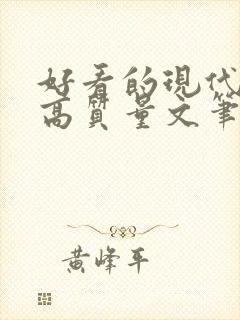 好看的现代
高质量文笔
黄峰平